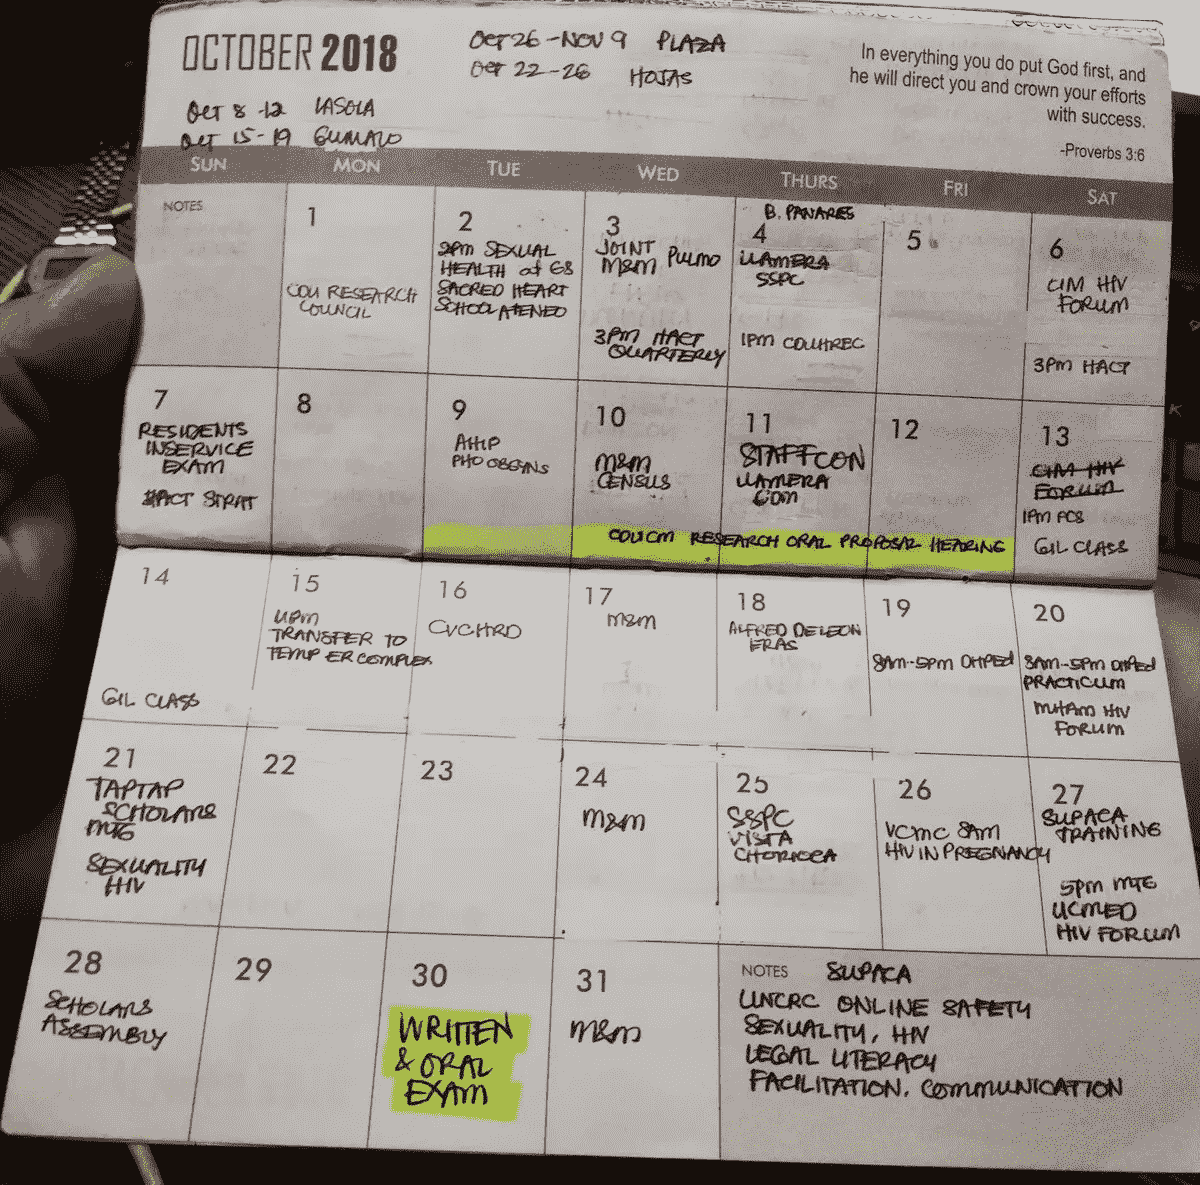 OCTOBER 2018
OCT 26 - NOV 9 PLAZA
OCT 22-26 HOJAS
OCT 8-12 LASOLA
OCT 15-19 GUMALO
In everything you do put God first, and
he will direct you and crown your efforts
with success.
-Proverbs 3:6
SUN MON TUE WED THURS FRI SAT
NOTES
1
CDU RESEARCH
COUNCIL
2
2PM SEXUAL
HEALTH at GS
SACRED HEART
SCHOOL ATENEO
3
JOINT
M&M PULMO
3PM HACT
QUARTERLY
B. PANARES
4
LLAMERA
SSPC
1PM CDUHREC
5
6
CIM HIV
FORUM
3PM HACT
7
RESIDENTS
INSERVICE
EXAM
HACT STRAT
8
9
AHIP
PHO OBGYNS
10
M&M
CENSUS
11
STAFFCON
LLAMERA
COM
12
CDUCM RESEARCH ORAL PROPOSAL HEARING
13
CIM HIV
FORUM
1PM PCS
GIL CLASS
14
GIL CLASS
15
4PM
TRANSFER TO
TEMP ER COMPLEX
16
CVCHRD
17
M&M
18
ALFRED DE LEON
ERAS
19
8AM-5PM OHPED
20
8AM-5PM OHPED
PRACTICUM
MHAM HIV
FORUM
21
TAPTAP
SCHOLARS
MTG
SEXUALITY
HIV
22
23
24
M&M
25
SSPC
VISTA
26
VCMC 8AM
HIV IN PREGNANCY
27
SUPACA
TRAINING
5PM MTG
UCMED
HIV FORUM
28
SCHOLARS
ASSEMBLY
29
30
WRITTEN
& ORAL
EXAM
31
M&M
NOTES SUPACA
UNCRC ONLINE SAFETY
SEXUALITY, HIV
LEGAL LITERACY
FACILITATION. COMMUNICATION